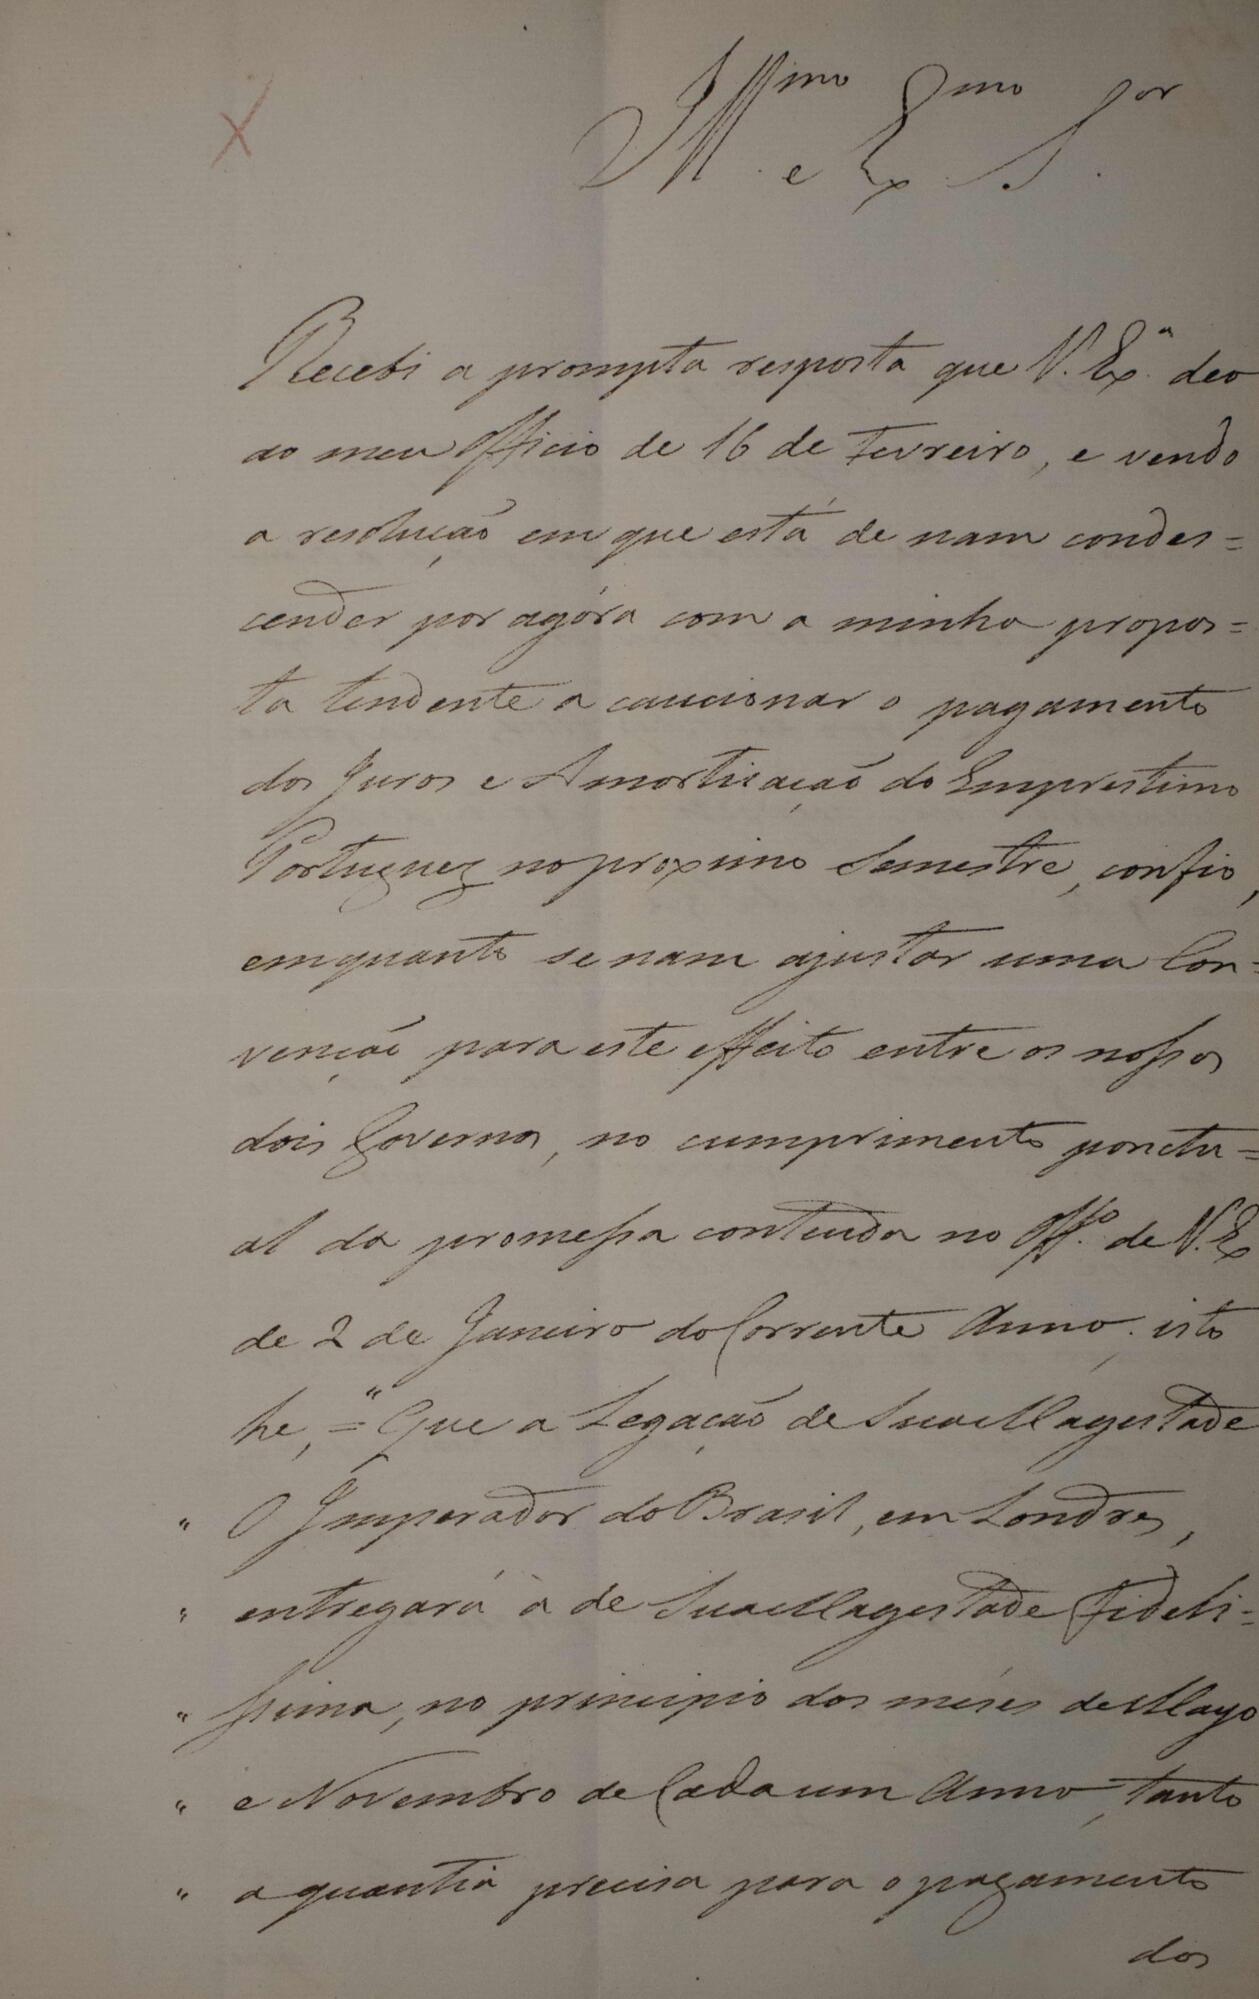 Illmo e Exmo Sor.
Recebi a prompta resposta que V. Exa. deo
ao meu Officio de 16 de Fevreiro, e vendo
a resolução em que está de nam condes=
cender por agóra com a minha propos=
ta tendente a caucionar o pagamento
dos Juros e Amortização do Emprestimo
Portuguez no proximo Semestre, confio,
emquanto se nam ajustar uma Con=
venção para este effeito entre os nossos
dois Governos, no cumprimento ponctu=
al da promessa contenda no Offo. de V. Ex
de 2 de Janeiro do Corrente Anno, isto
he, =" Que a Legação de Sua Magestade
" O Imperador do Brasil, em Londres,
" entregará à de Sua Magestade Fideli=
" ssima, no principio dos méses de Mayo
" e Novembro de Cada um Anno, tanto
" a quantia precisa para o pagamento
dos